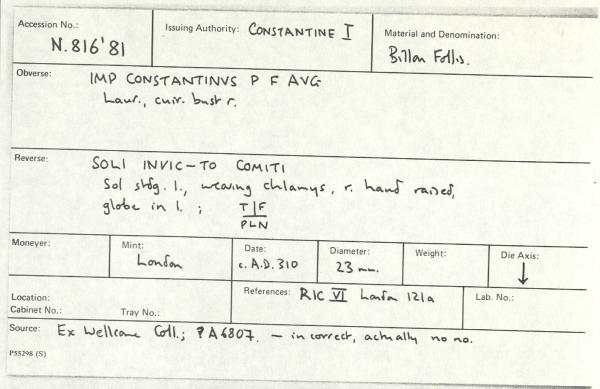 Accession No.: N.816'81
Issuing Authority: CONSTANTINE I
Material and Denomination: Billon Follis.
Obverse: IMP CONSTANTINVS P F AVG
Laur., cuir. bust r.
Reverse: SOLI INVIC–TO COMITI
Sol stdg. l., wearing chlamys, r. hand raised,
globe in l. ; T|F
PLN
Moneyer:
Mint: London
Date: c. A.D. 310
Diameter: 23 mm.
Weight:
Die Axis: ↓
Location:
Cabinet No.: Tray No.:
References: RIC VI London 121a
Lab. No.:
Source: Ex Wellcome Coll.; ? A6807. – incorrect, actually no no.
P55298 (S)